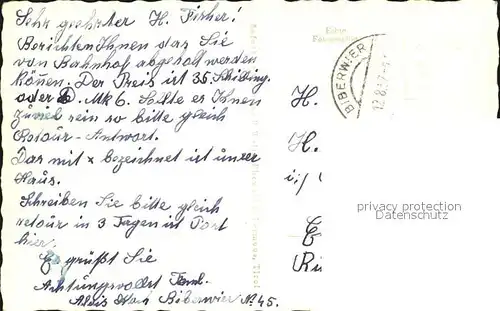 Sehr geehrter H. Fischer!
Berichten Ihnen das Sie
von Bahnhof abgeholt werden
können. Der Preis ist 35 Schilling.
oder D. Mk 6. Sollte er Ihnen
zuviel sein so bitte gleich
Retour-Antwort.
Das mit x bezeichnet ist unser
Haus.
Schreiben Sie bitte gleich
retour in 3 Tagen ist Post
hier.
Es grüßt Sie
Achtungsvollst Faml.
Alois Biberwier No 45.
BIBERWIER
H.
H.
privacy protection
Datenschutz